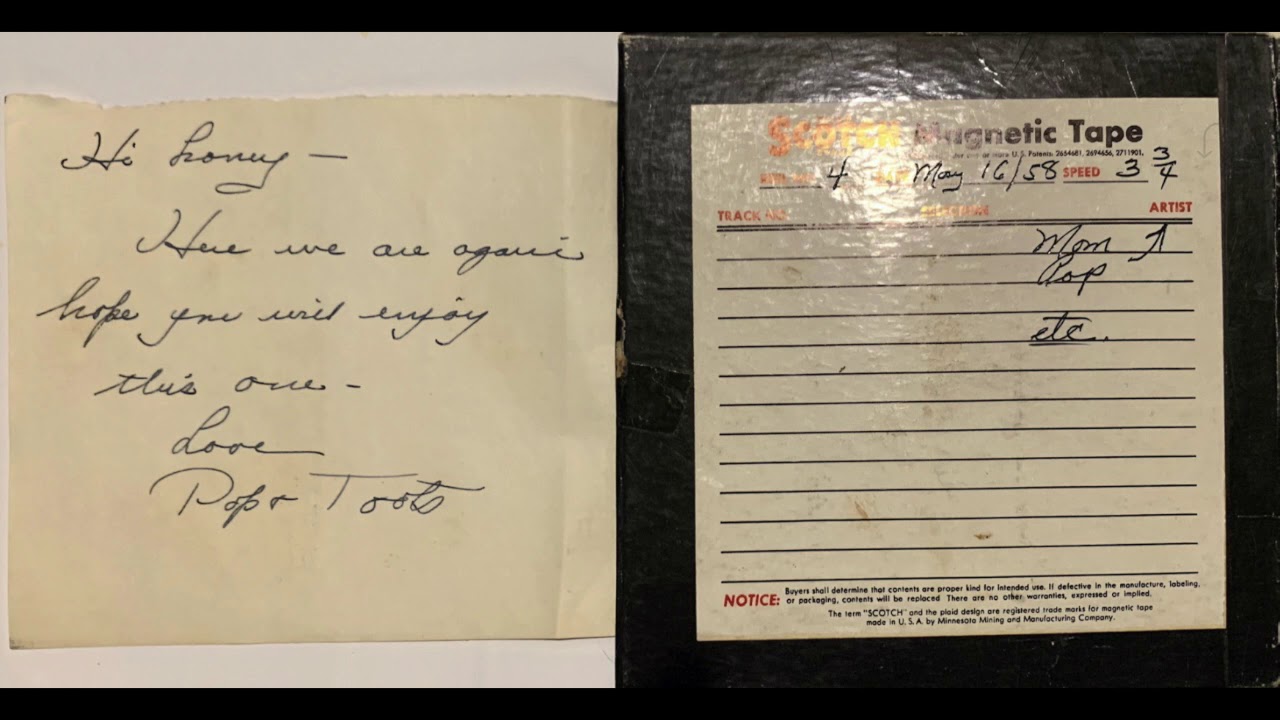 Hi honey –
Here we are again
hope you will enjoy
this one –
Love
Pop & Toots
SCOTCH Magnetic Tape
U.S. Patents: 2654681, 2694656, 2711901,
4 May 16/58 SPEED 3 3/4
TRACK NO. ARTIST
Mom &
Pop
etc.
NOTICE: Buyers shall determine that contents are proper kind for intended use. If defective in the manufacture, labeling,
or packaging, contents will be replaced. There are no other warranties, expressed or implied.
The term "SCOTCH" and the plaid design are registered trade marks for magnetic tape
made in U.S.A. by Minnesota Mining and Manufacturing Company.